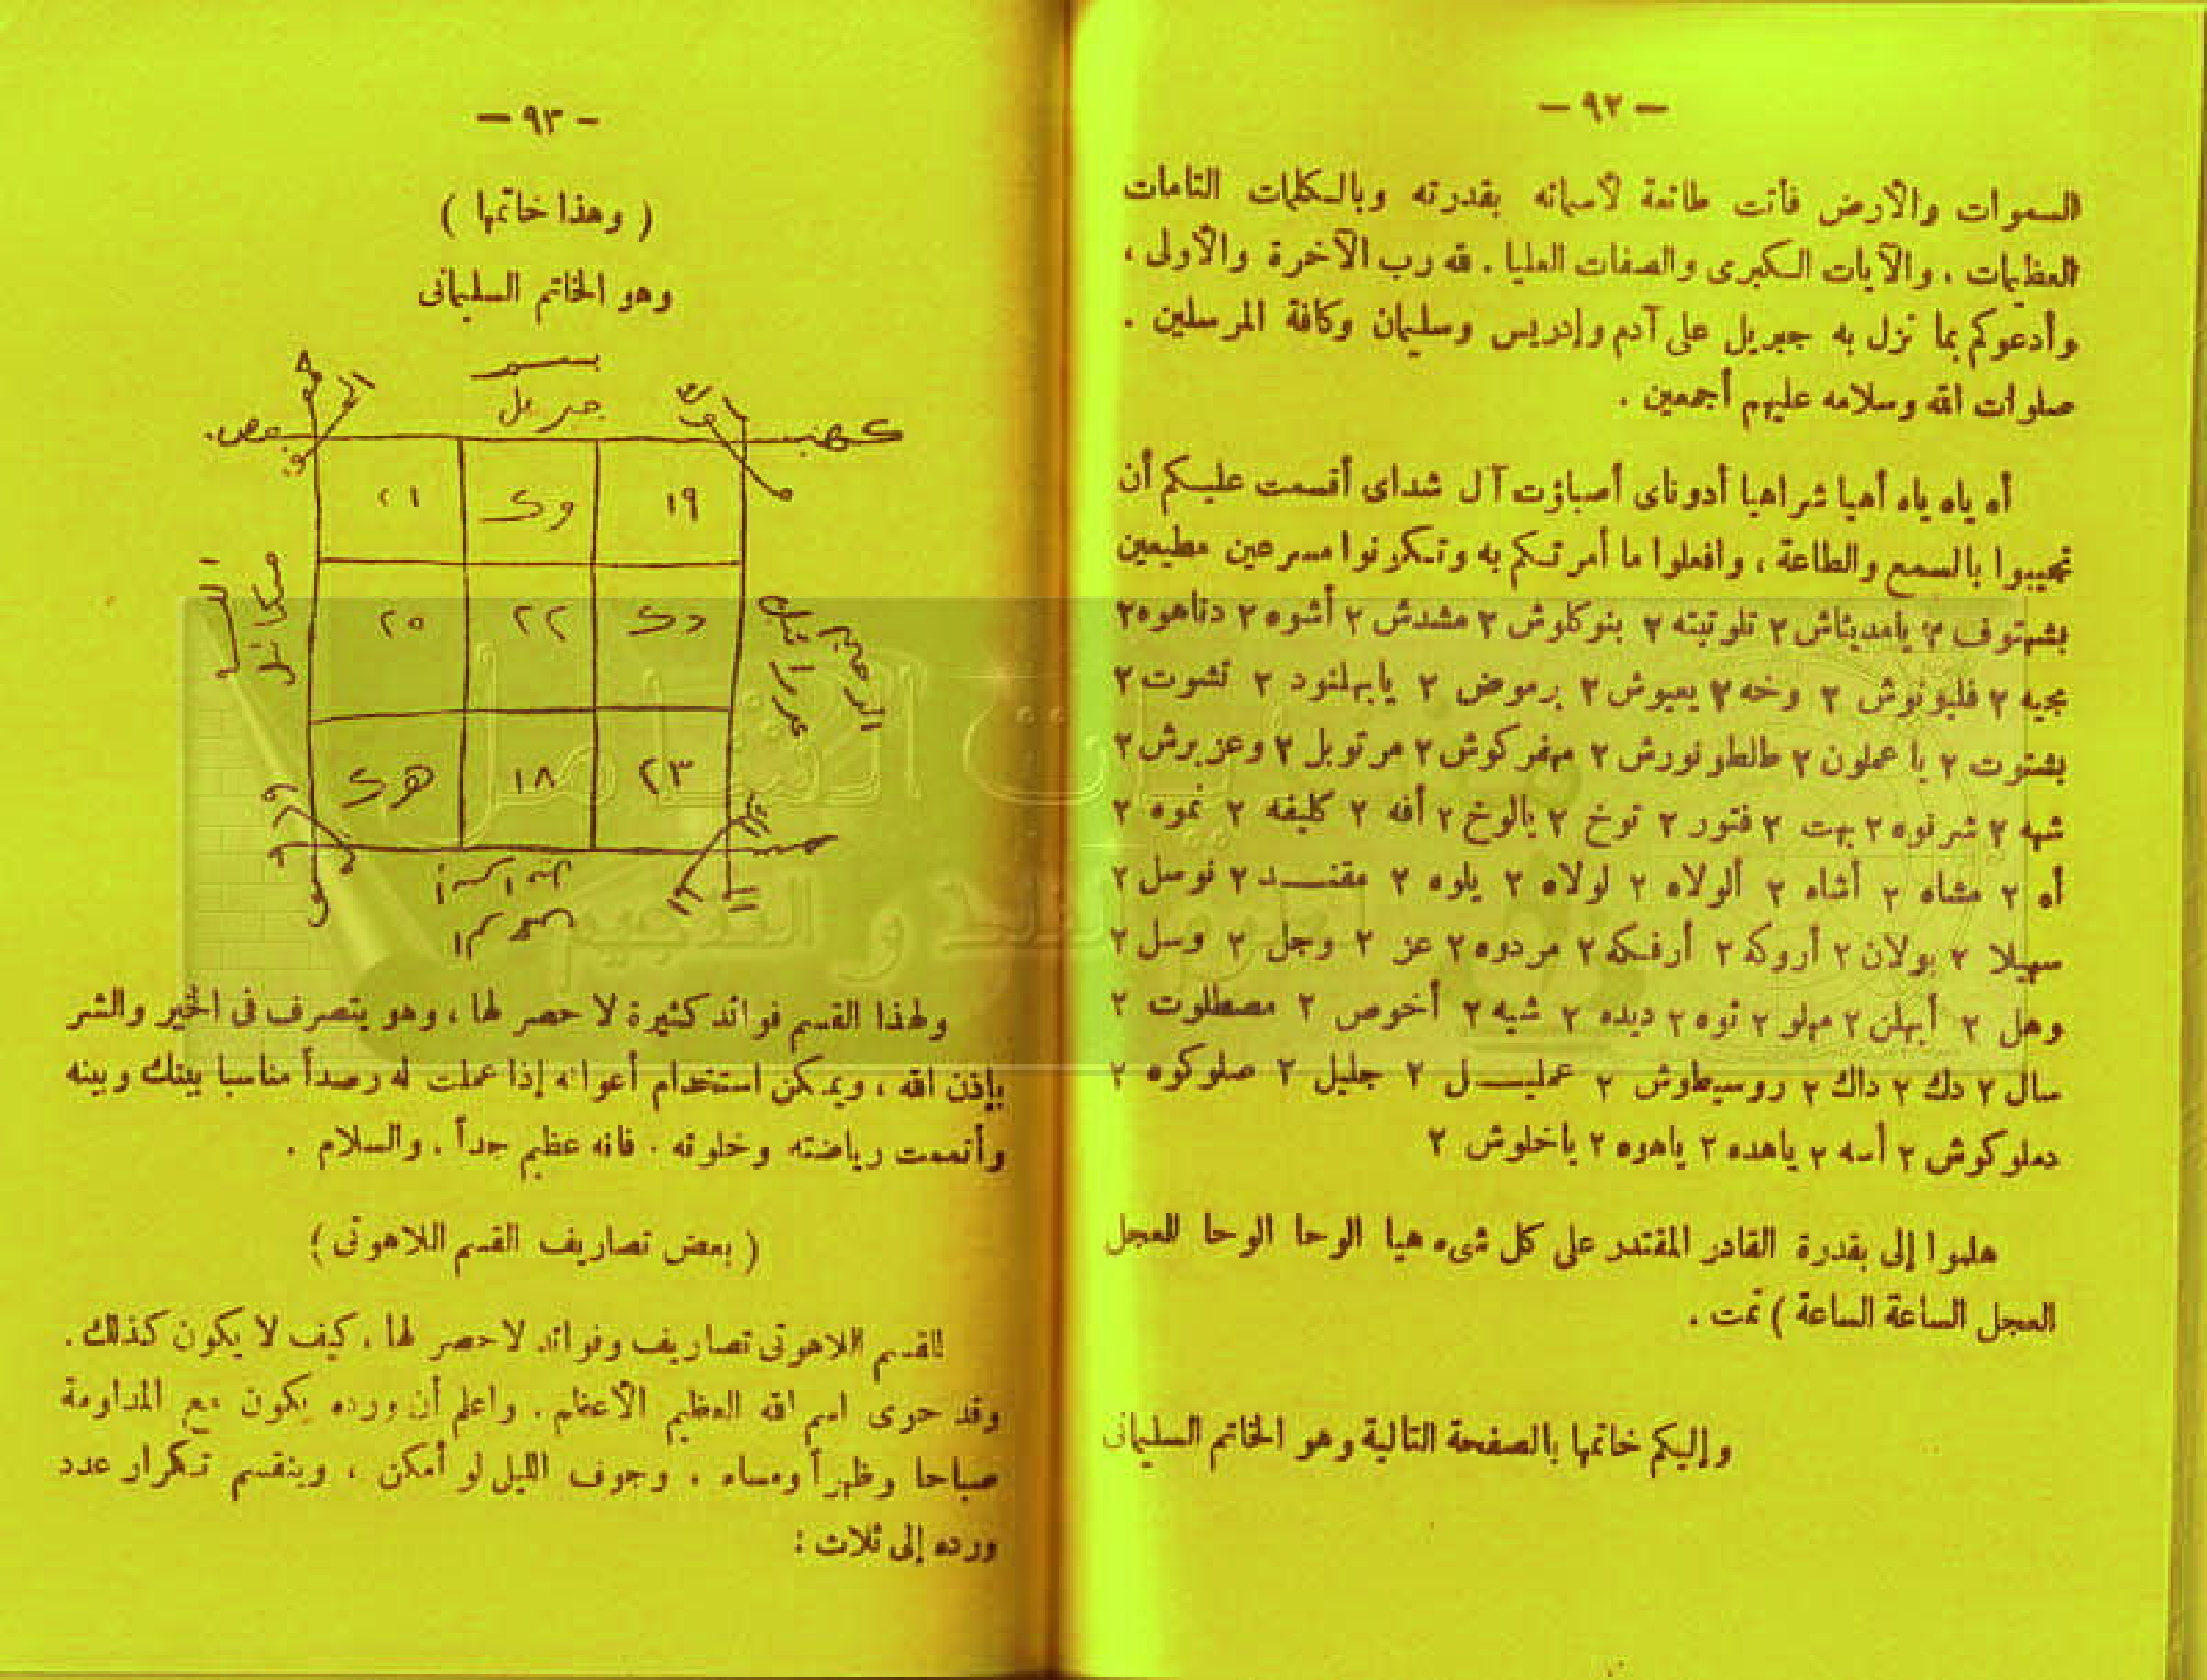 — ٩٢ —
السموات والأرض فأتت طائعة لأسمائه بقدرته وبالكلمات التامات
العظيمات . والآيات الكبرى والصفات العليا . لله رب الآخرة والأولى ،
وأدعوكم بما نزل به جبريل على آدم وإدريس وسليمان وكافة المرسلين .
صلوات الله وسلامه عليهم أجمعين .
أه ياه ياه أهيا شراهيا أدوناى أصباؤت آل شداى أقسمت عليكم أن
تجيبوا بالسمع والطاعة ، وافعلوا ما أمرتكم به وتكونوا مسرعين مطيعين
بشهتوف ٢ يامديثاش ٢ تلوتبته ٢ بنوكلوش ٢ مشدش ٢ أشوه ٢ دناهوه ٢
بجيه ٢ فليونوش ٢ وخه ٢ يعيوش ٢ برموض ٢ يابهلنود ٢ تشوت ٢
بشتوت ٢ يا عملون ٢ طالطونورش ٢ مهفركوش ٢ مرتوبل ٢ وعزبرش ٢
شهه ٢ شرنوه ٢ بهت ٢ فتور ٢ توخ ٢ يالوخ ٢ أفه ٢ كليفه ٢ نموه ٢
أه ٢ مشاه ٢ أشاه ٢ ألولاه ٢ لولاه ٢ يلوه ٢ مقنـــد ٢ نوصل ٢
سهيلا ٢ بولان ٢ أروكة ٢ أرفكه ٢ مردوه ٢ عز ٢ وجل ٢ وسل ٢
وهل ٢ أبهلن ٢ مهلو ٢ نوه ٢ ديده ٢ شيه ٢ أخوص ٢ مصطلوت ٢
سال ٢ دك ٢ داك ٢ روسيطوش ٢ عمليـــل ٢ جليل ٢ صلوكوه ٢
دملوكوش ٢ أسه ٢ ياهده ٢ ياهوه ٢ ياخلوش ٢
هلموا إلى بقدرة القادر المقتدر على كل شىء هيا الوحا الوحا العجل
العجل الساعة الساعة ) تمت .
وإليكم خاتمها بالصفحة التالية وهو الخاتم السليمانى
— ٩٣ —
( وهذا خاتمها )
وهو الخاتم السليمانى
بسم
جبريل
كهيـ
ـعص
١٩ وك ٢١
دك ٢٢ ٢٠
٢٣ ١٨ هك
ميكائيل
الله
عزرائيل
الرحيم
حمعسـ
ـق
ولهذا القسم فوائد كثيرة لا حصر لها ، وهو يتصرف فى الخير والشر
بإذن الله ، ويمكن استخدام أعوانه إذا عملت له رصداً مناسبا بينك وبينه
وأتممت رياضته وخلوته . فانه عظيم جداً . والسلام .
( بعض تصاريف القسم اللاهوتى )
للقسم اللاهوتى تصاريف وفوائد لا حصر لها . كيف لا يكون كذلك .
وقد حوى اسم الله العظيم الأعظم . واعلم أن ورده يكون مع المداومة
صباحا وظهراً ومساء . وجوف الليل لو أمكن ، وينقسم تكرار عدد
ورده إلى ثلاث :